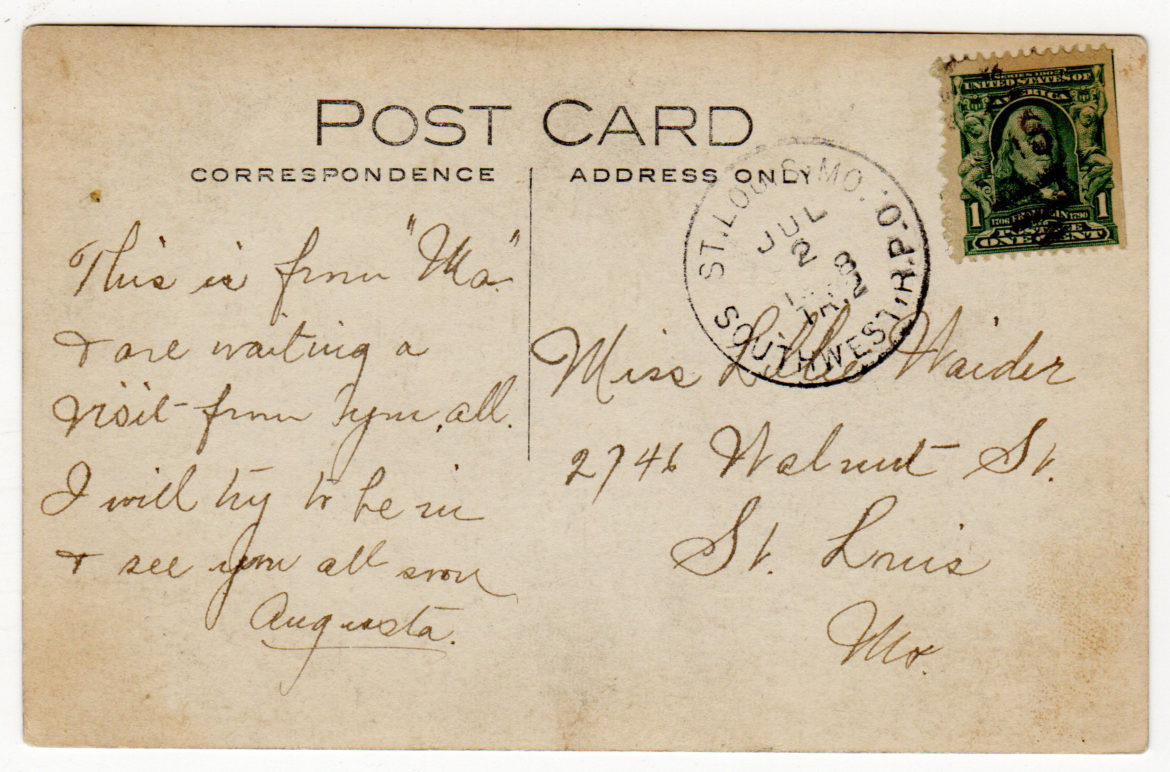 POST CARD
CORRESPONDENCE
ADDRESS ONLY
SERIES 1902
UNITED STATES OF
AMERICA
1 1706 FRANKLIN 1790 1
POSTAGE
ONE CENT
ST. LOUIS, MO.
JUL
2
8
TR. 2
SOUTHWEST, R.P.O.
This is from "Ma"
& are waiting a
visit from you, all.
I will try to be in
& see you all soon
Augusta.
Miss Lillie Waider
2746 Walnut St.
St. Louis
Mo.